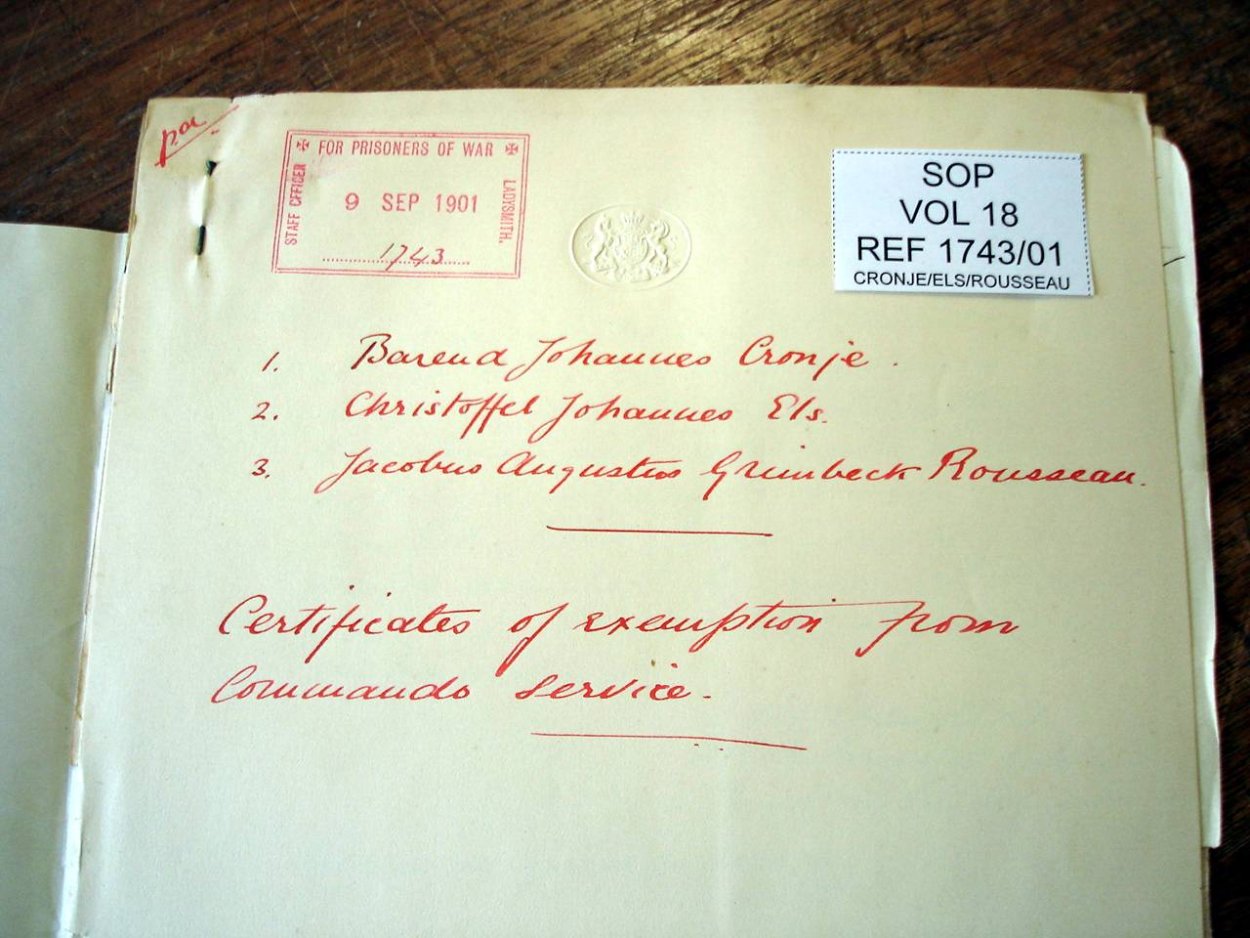 p.a.
FOR PRISONERS OF WAR
STAFF OFFICER
9 SEP 1901
LADYSMITH.
1743
SOP
VOL 18
REF 1743/01
CRONJE/ELS/ROUSSEAU
1. Barend Johannes Cronje.
2. Christoffel Johannes Els.
3. Jacobus Augustus Grimbeck Rousseau.
Certificates of exemption from
Commando service.